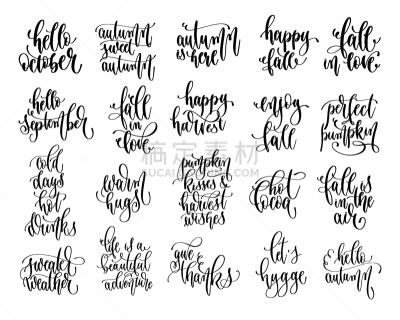 hello
october
autumn
sweet
autumn
autumn
is here
happy
fall
fall
in love
hello
september
fall
in
love
happy
harvest
enjoy
fall
perfect
pumpkin
cold
days
hot
drinks
warm
hugs
pumpkin
kisses &
harvest
wishes
hot
cocoa
fall is
in the
air
sweater
weather
life is a
beautiful
adventure
give
thanks
let's
hygge
hello
autumn
滴定素材